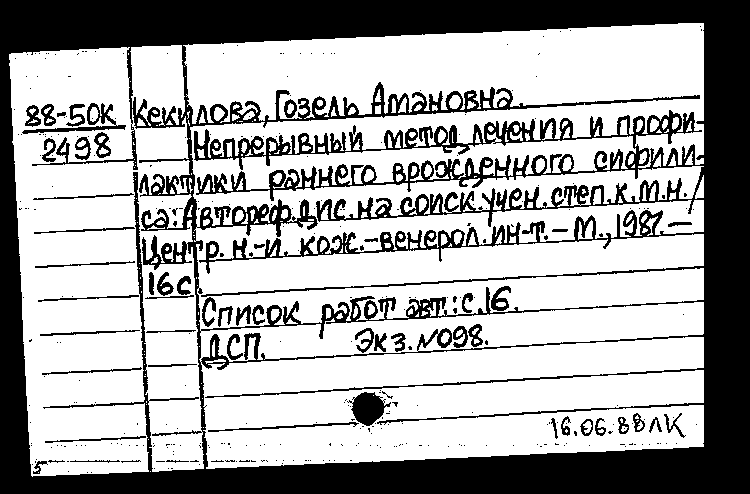 88-50К Кекилова, Гозель Амановна.
2498 Непрерывный метод лечения и профи-
лактики раннего врожденного сифили-
са: Автореф. дис. на соиск. учен. степ. к.м.н. /
Центр. н.-и. кож.-венерол. ин-т. – М., 1987. –
16 с.
Список работ авт.: с. 16.
ДСП. Экз. №098.
16.06.88 ЛК
5